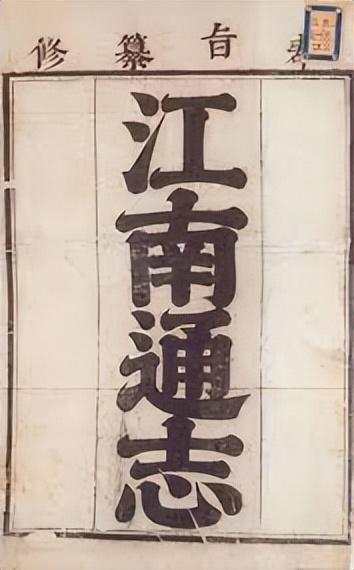 旨纂修
江南通志